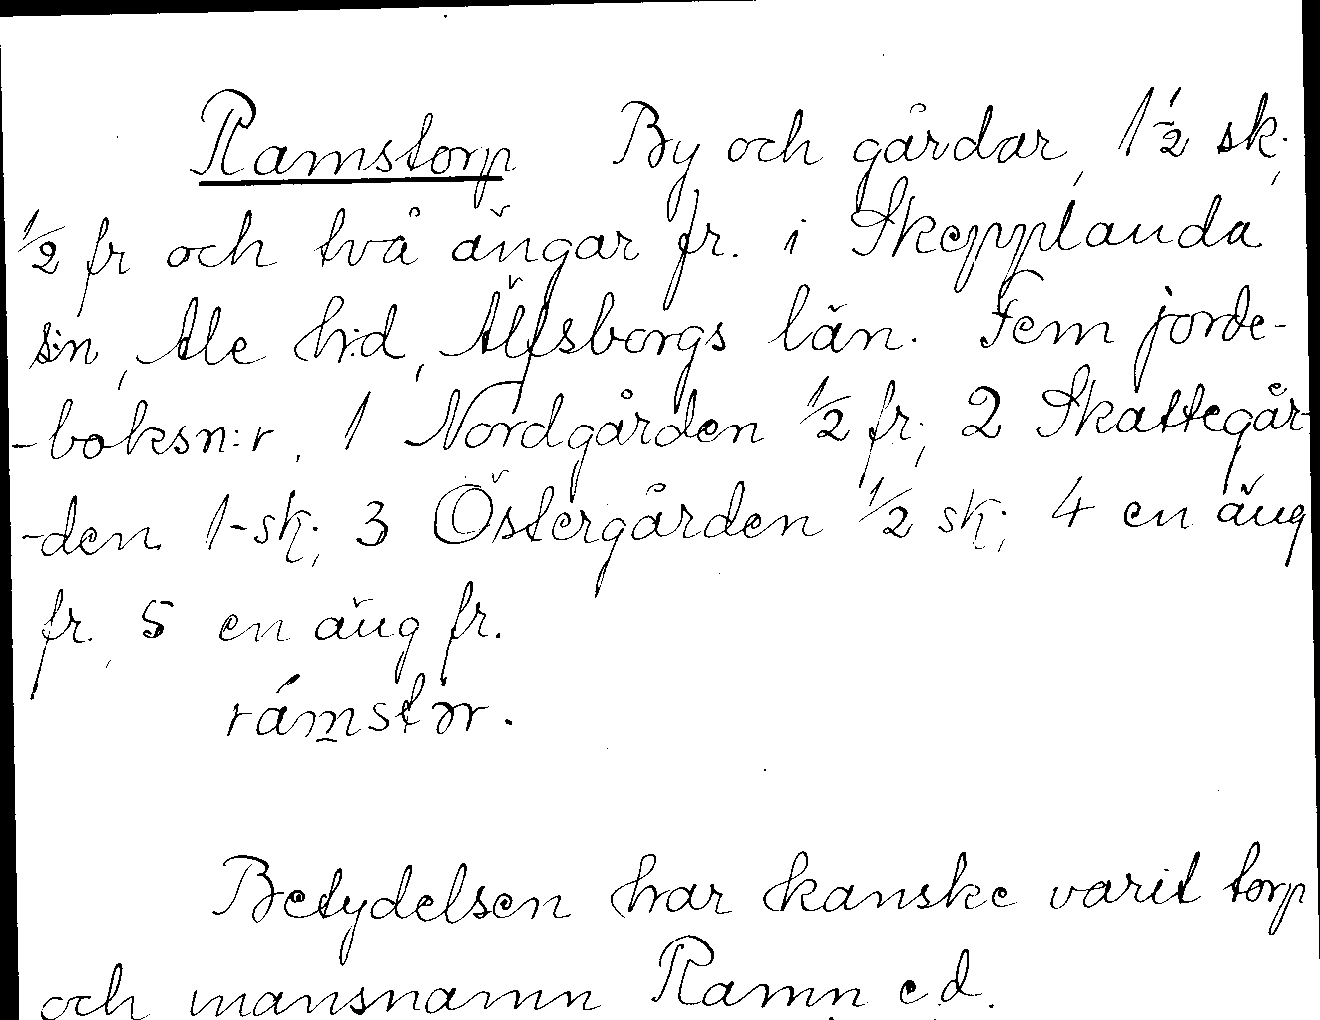 Ramstorp By och gårdar, 1 1/2 sk.,
1/2 fr och två ängar fr. i Skepplanda
s:n, Ale h:d, Älfsborgs län. Fem jorde-
-boksn:r, 1 Nordgården 1/2 fr., 2 Skattegår-
-den 1 sk., 3 Östergården 1/2 sk., 4 en äng
fr., 5 en äng fr.
rámstər.
Betydelsen har kanske varit torp
och mansnamn Ramn e d.